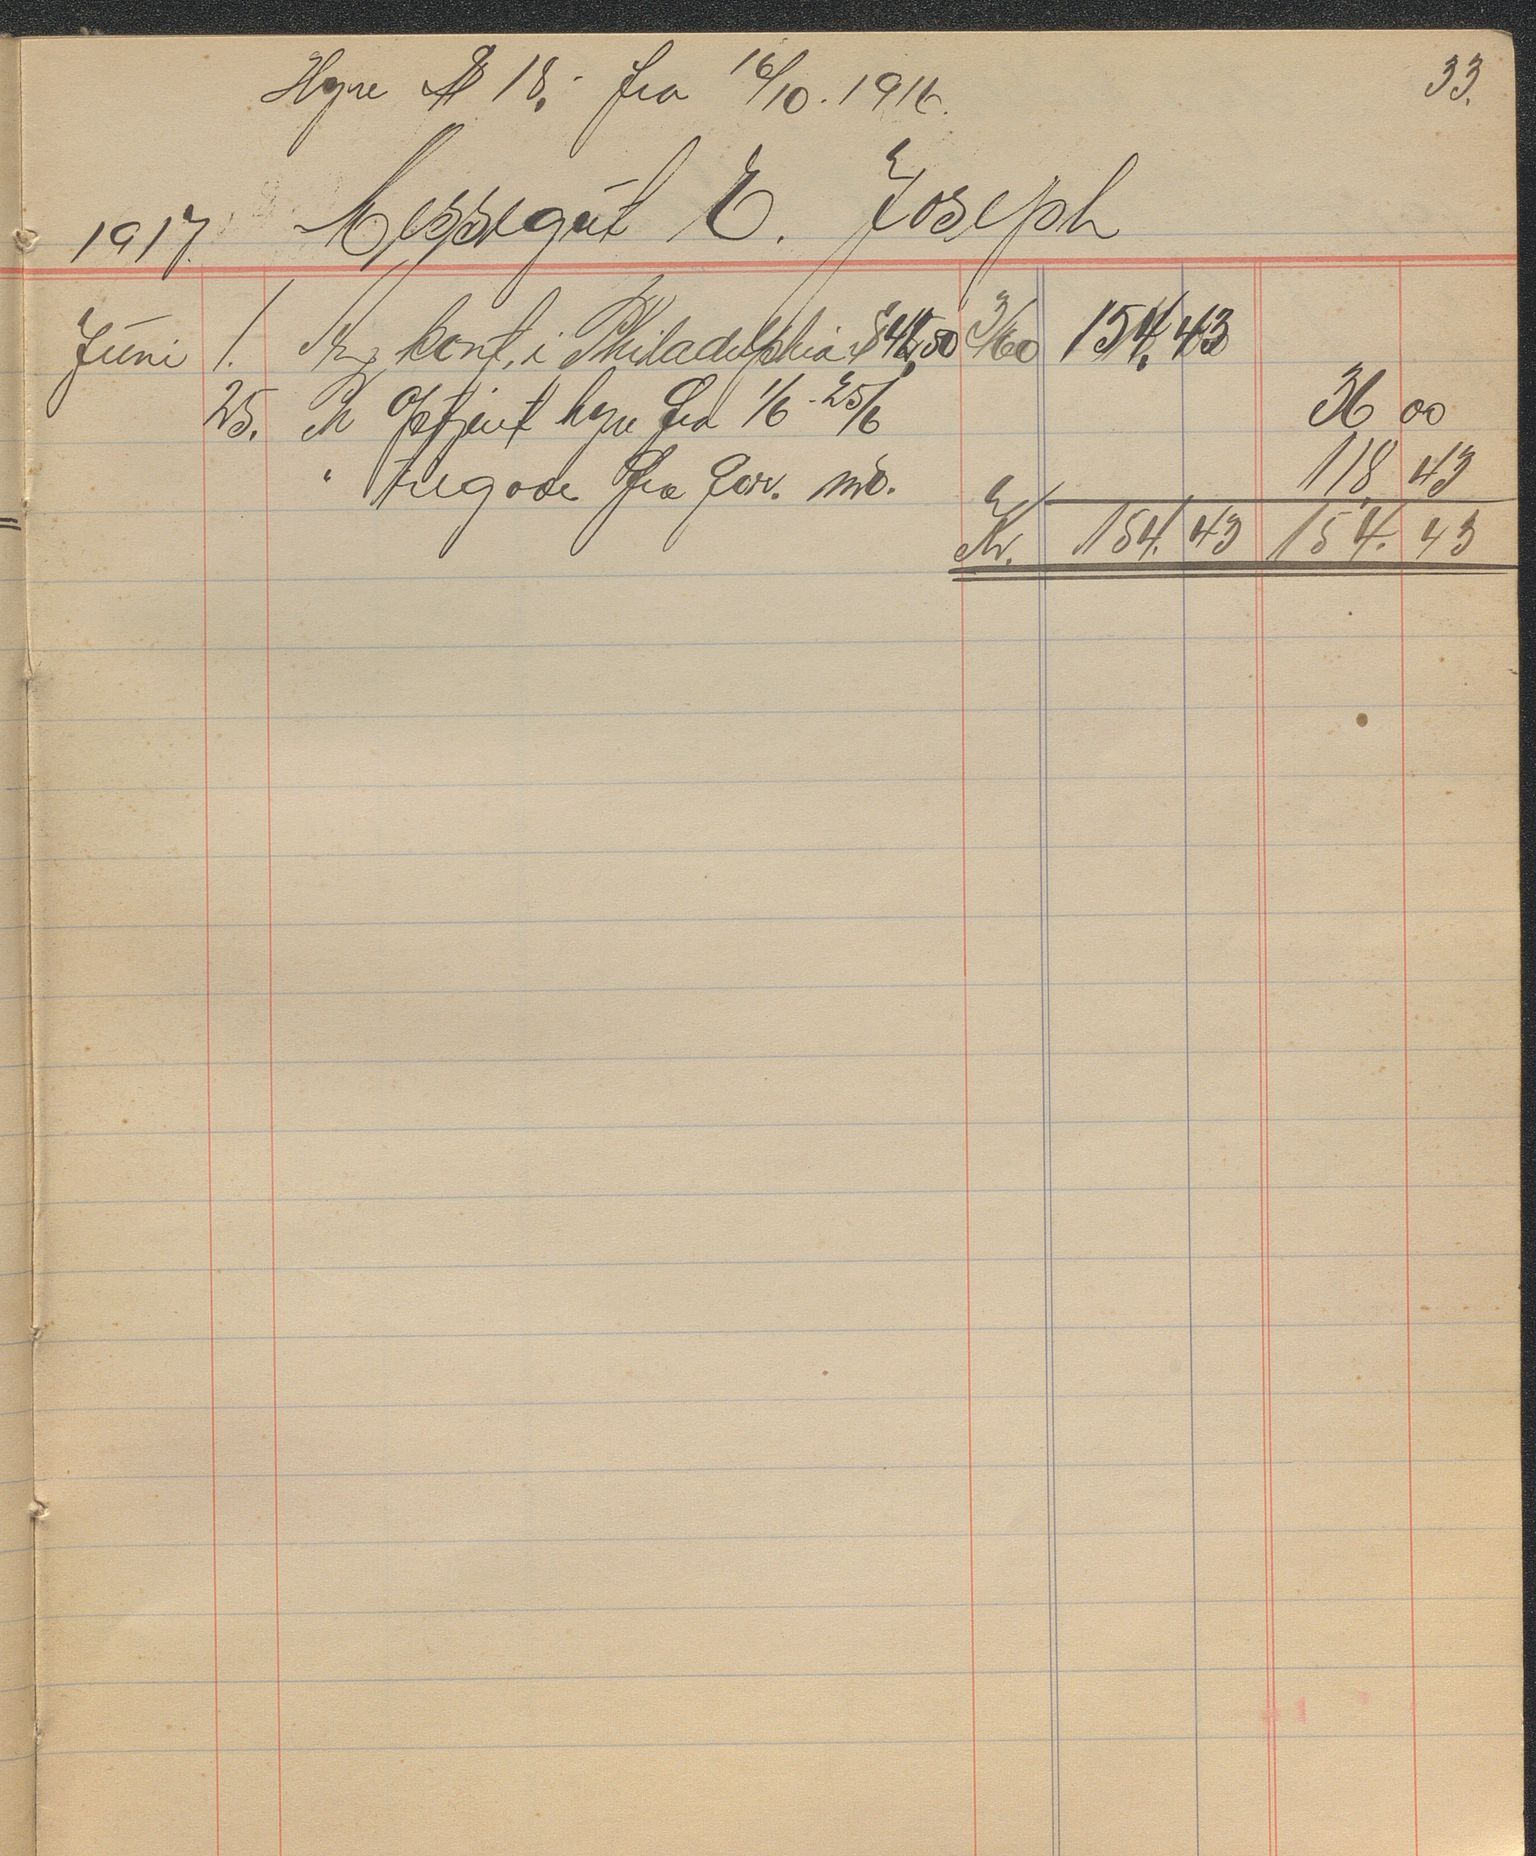 Hyre $ 18,- fra 16/10. 1916.
33.
1917. Messegut E. Joseph
Juni 1. An kont. i Philadelphia $ 44,50 3/60 154,43
25. Pr Optjent hyre fra 1/6 - 25/6 36 00
" tilgode fra forr. 118,43
Kr. 154.43 154.43